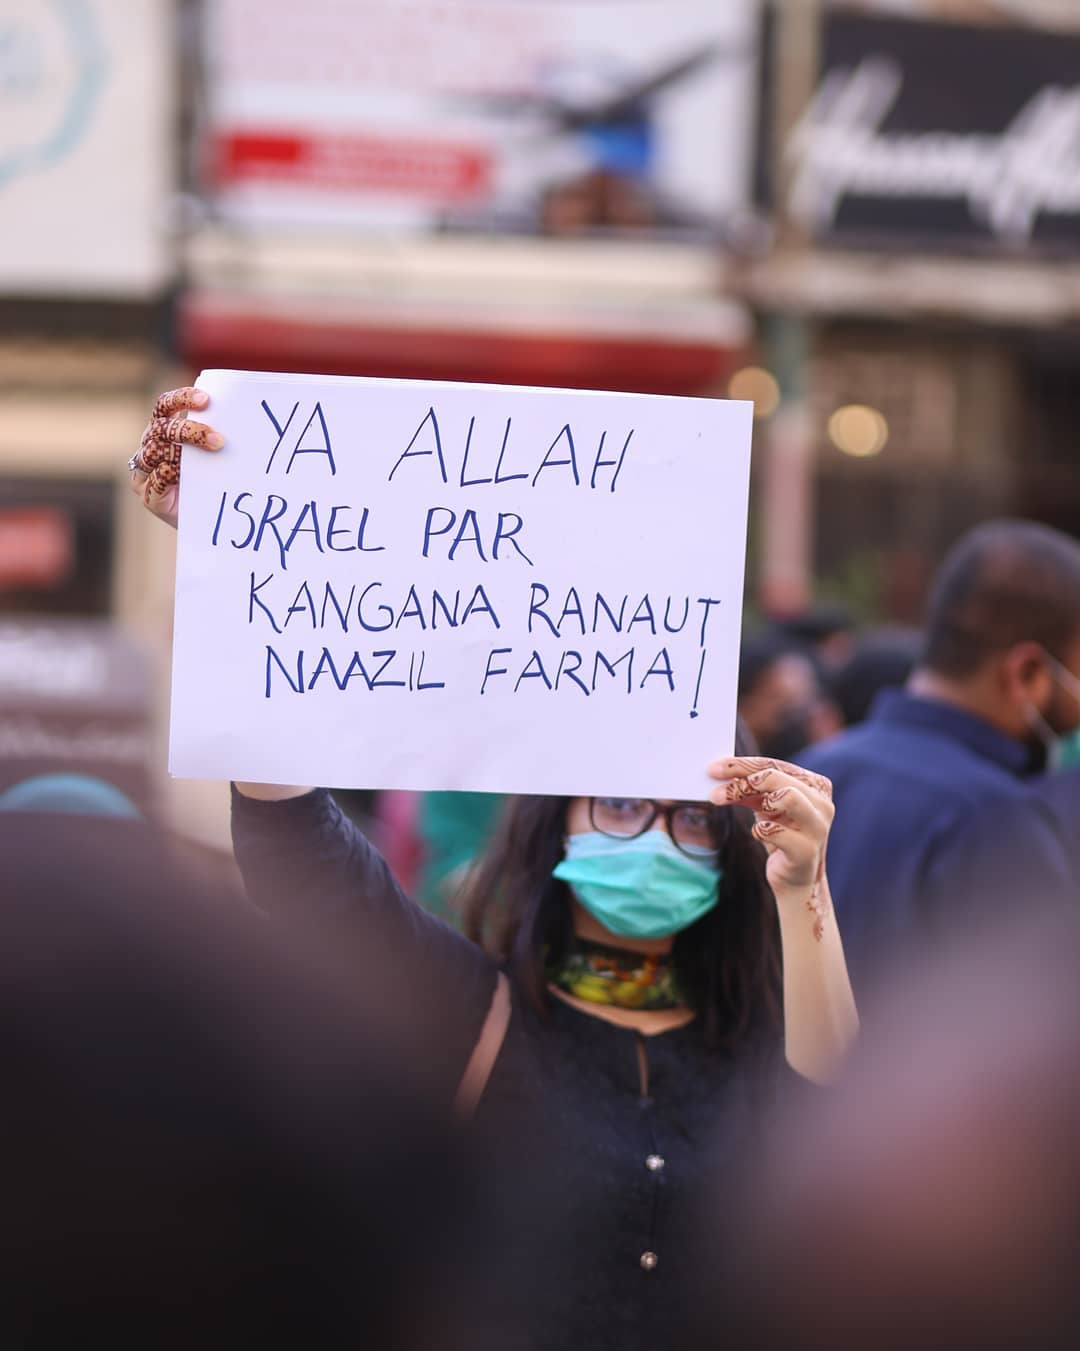 YA ALLAH
ISRAEL PAR
KANGANA RANAUT
NAAZIL FARMA!